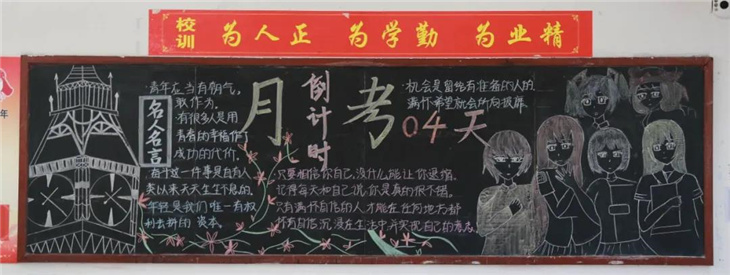 校训
为人正 为学勤 为业精
名人名言
青年应当有朝气，
敢作为。
有很多人是用
青春的幸福作了
成功的代价。
每个这一件事是自有人
类以来天天生生不息的。
年轻是我们唯一有权
利去拼的资本。
月考
倒计时
04天
机会是留给有准备的人的
满怀希望就会所向披靡
只要相信你自己，没什么能让你退惜
记得每天和自己说你是真的很不错。
只有满怀自信的人才能在任何地方都
怀有自信沉浸在生活中并实现自己的